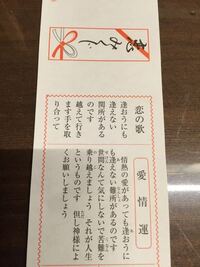 恋の歌
逢おうにも
逢えない
関所がある
のです
越えて行き
ます手を取
り合って
愛情運
情熱の愛があっても逢おうに
も逢えない難所があるのです
世間なんて気にしないで苦難を
乗り越えましょう それが人生
というものです 但し神様によ
くお願いしましょう